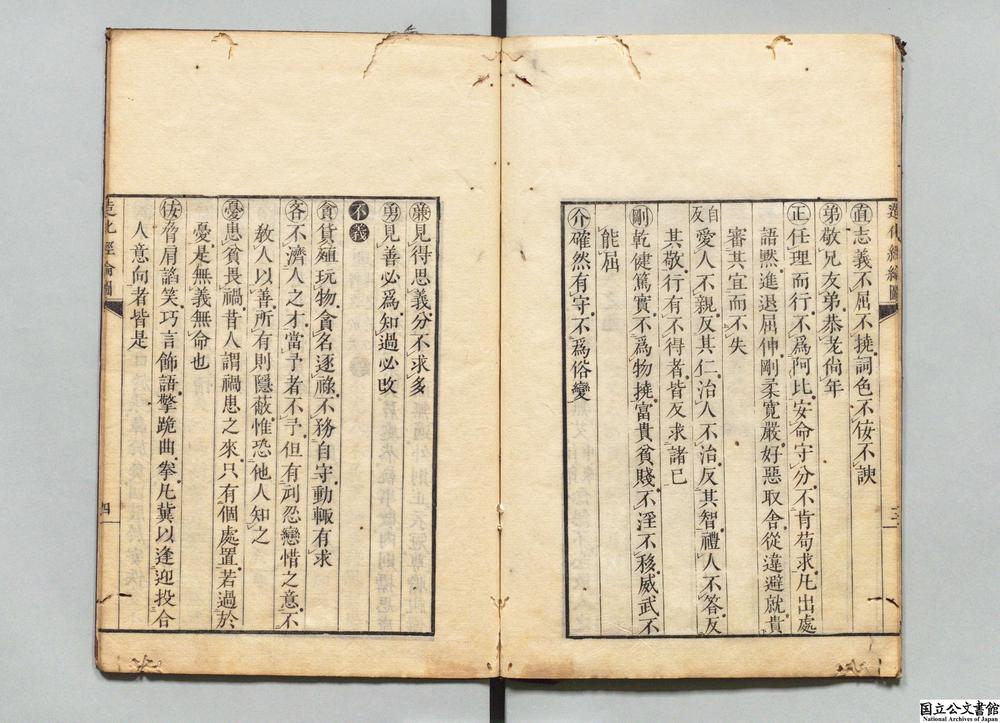 造化經綸圖
三
直志義不屈不撓詞色不佞不諛
弟敬兄友弟恭老尙年
正任理而行不爲阿比安命守分不肯苟求凡出處
語黙進退屈伸剛柔寬嚴好惡取舍從違避就貴
審其宜而不失
自反愛人不親反其仁治人不治反其智禮人不答反
其敬行有不得者皆反求諸己
剛乾健篤實不爲物撓富貴貧賤不淫不移威武不
能屈
介確然有守不爲俗變
廉見得思義分不求多
勇見善必爲知過必改
不義
貪貨殖玩物貪名逐祿不務自守動輒有求
吝不濟人之才當予者不予但有刓忍戀惜之意不
敎人以善所有則隱蔽惟恐他人知之
憂患貧畏禍昔人謂禍患之來只有個處置若過於
憂是無義無命也
佞脅肩謟笑巧言飾語擎跪曲拳凡冀以逢迎投合
人意向者皆是
造化經綸圖
四
国立公文書館
National Archives of Japan